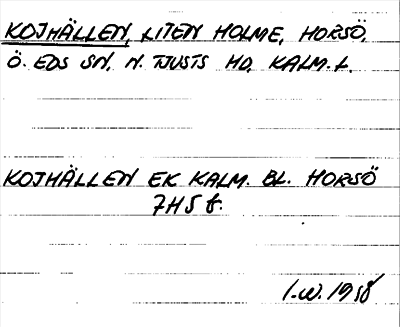 KOJHÄLLEN, LITEN HOLME, HORSÖ,
Ö. EDS SN, N. TJUSTS HD, KALM. L.
KOJHÄLLEN EK KALM. BL. HORSÖ
7H5f.
I.W. 1958